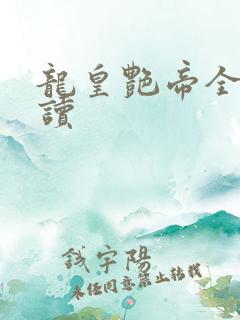 龍皇艷帝全
讀
錢宇陽
未经同意禁止转载